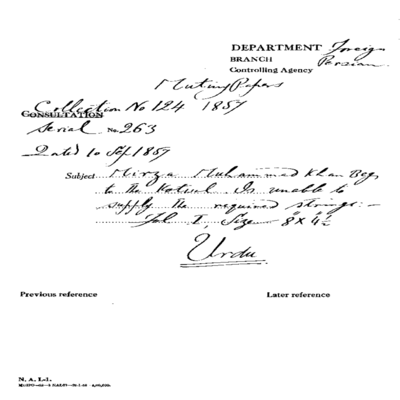 DEPARTMENT Foreign
BRANCH Persian
Controlling Agency
Mutiny Papers
Collection No 124 1857
CONSULTATION
Serial No. 263
Dated 10 Sep 1857
Subject Mirza Muhammad Khan Beg
to the Kotwal Is unable to
supply the required strings:-
Fol I, Size 8" x 4½"
Urdu
Previous reference Later reference
N. A. I.-1.